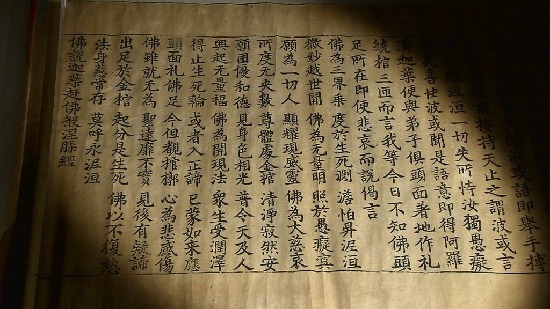 或語即舉手搏
接持天止之謂波或言
泥洹一切失所恃汝獨愚癡
喜快波或聞是語意即得阿羅
漢迦葉便與弟子俱頭面著地作礼
繞棺三匝而言我等今日不知佛頭
足所在即便悲哀而說偈言
佛為三界乘 度於生死淵 澹怕昇泥洹
微妙越世間 佛為无量明 照於愚癡冥
願為一切人 顯耀現威靈 佛為大慈哀
所度无央數 尊體處金棺 清淨寂然安
願回優和德 見身色相光 普令天及人
興起无量福 佛為開現法 眾生受潤澤
得止生死輪 或者入正諦 已蒙如來應
頭面礼佛足 今但覩棺槨 心為悲感傷
佛雖就无為 聖達靡不實 見後有疑諦
出足於金棺 起分是生死 佛以不復愁
法身慈常存 莫呼永泥洹
佛說迦葉赴佛般涅槃經